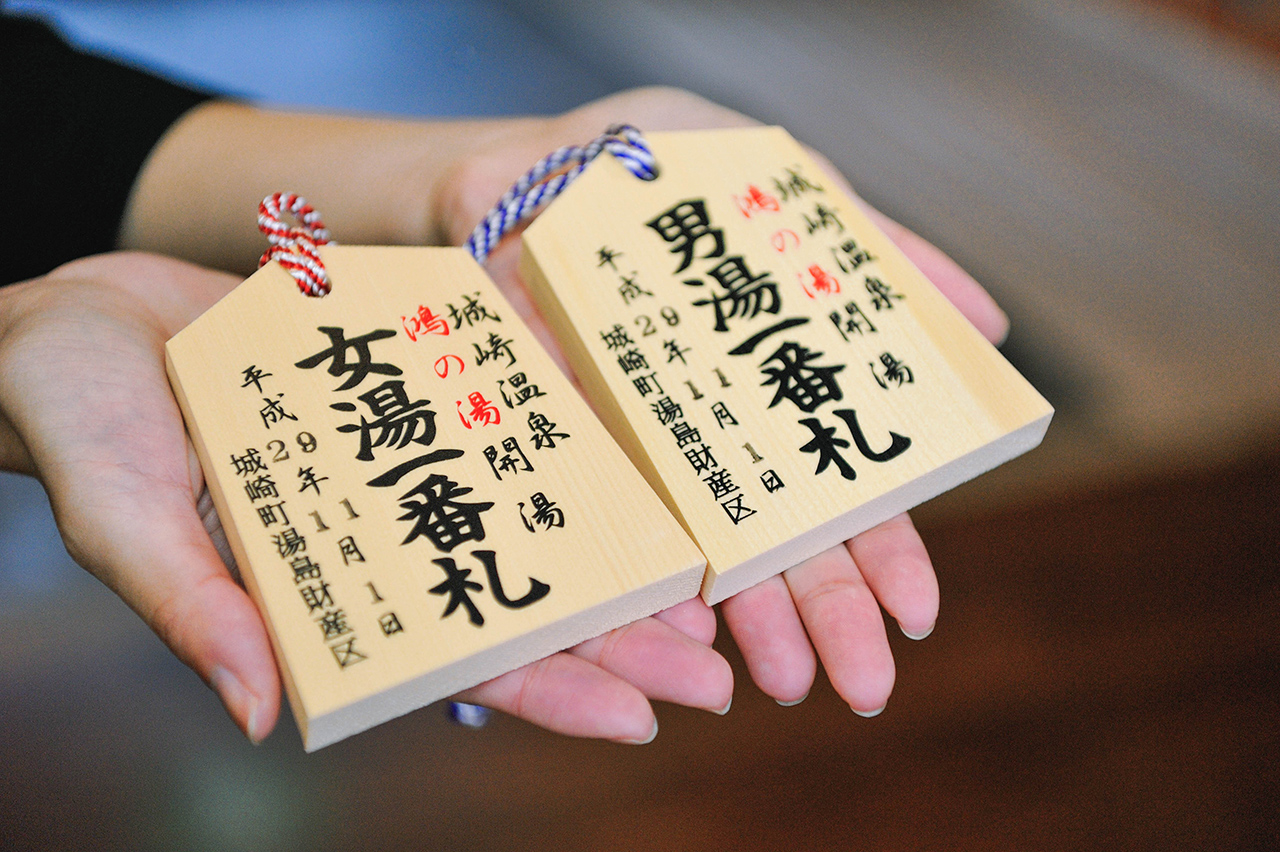 城崎温泉
鴻の湯 開湯
女湯一番札
平成29年11月1日
城崎町湯島財産区
城崎温泉
鴻の湯 開湯
男湯一番札
平成29年11月1日
城崎町湯島財産区